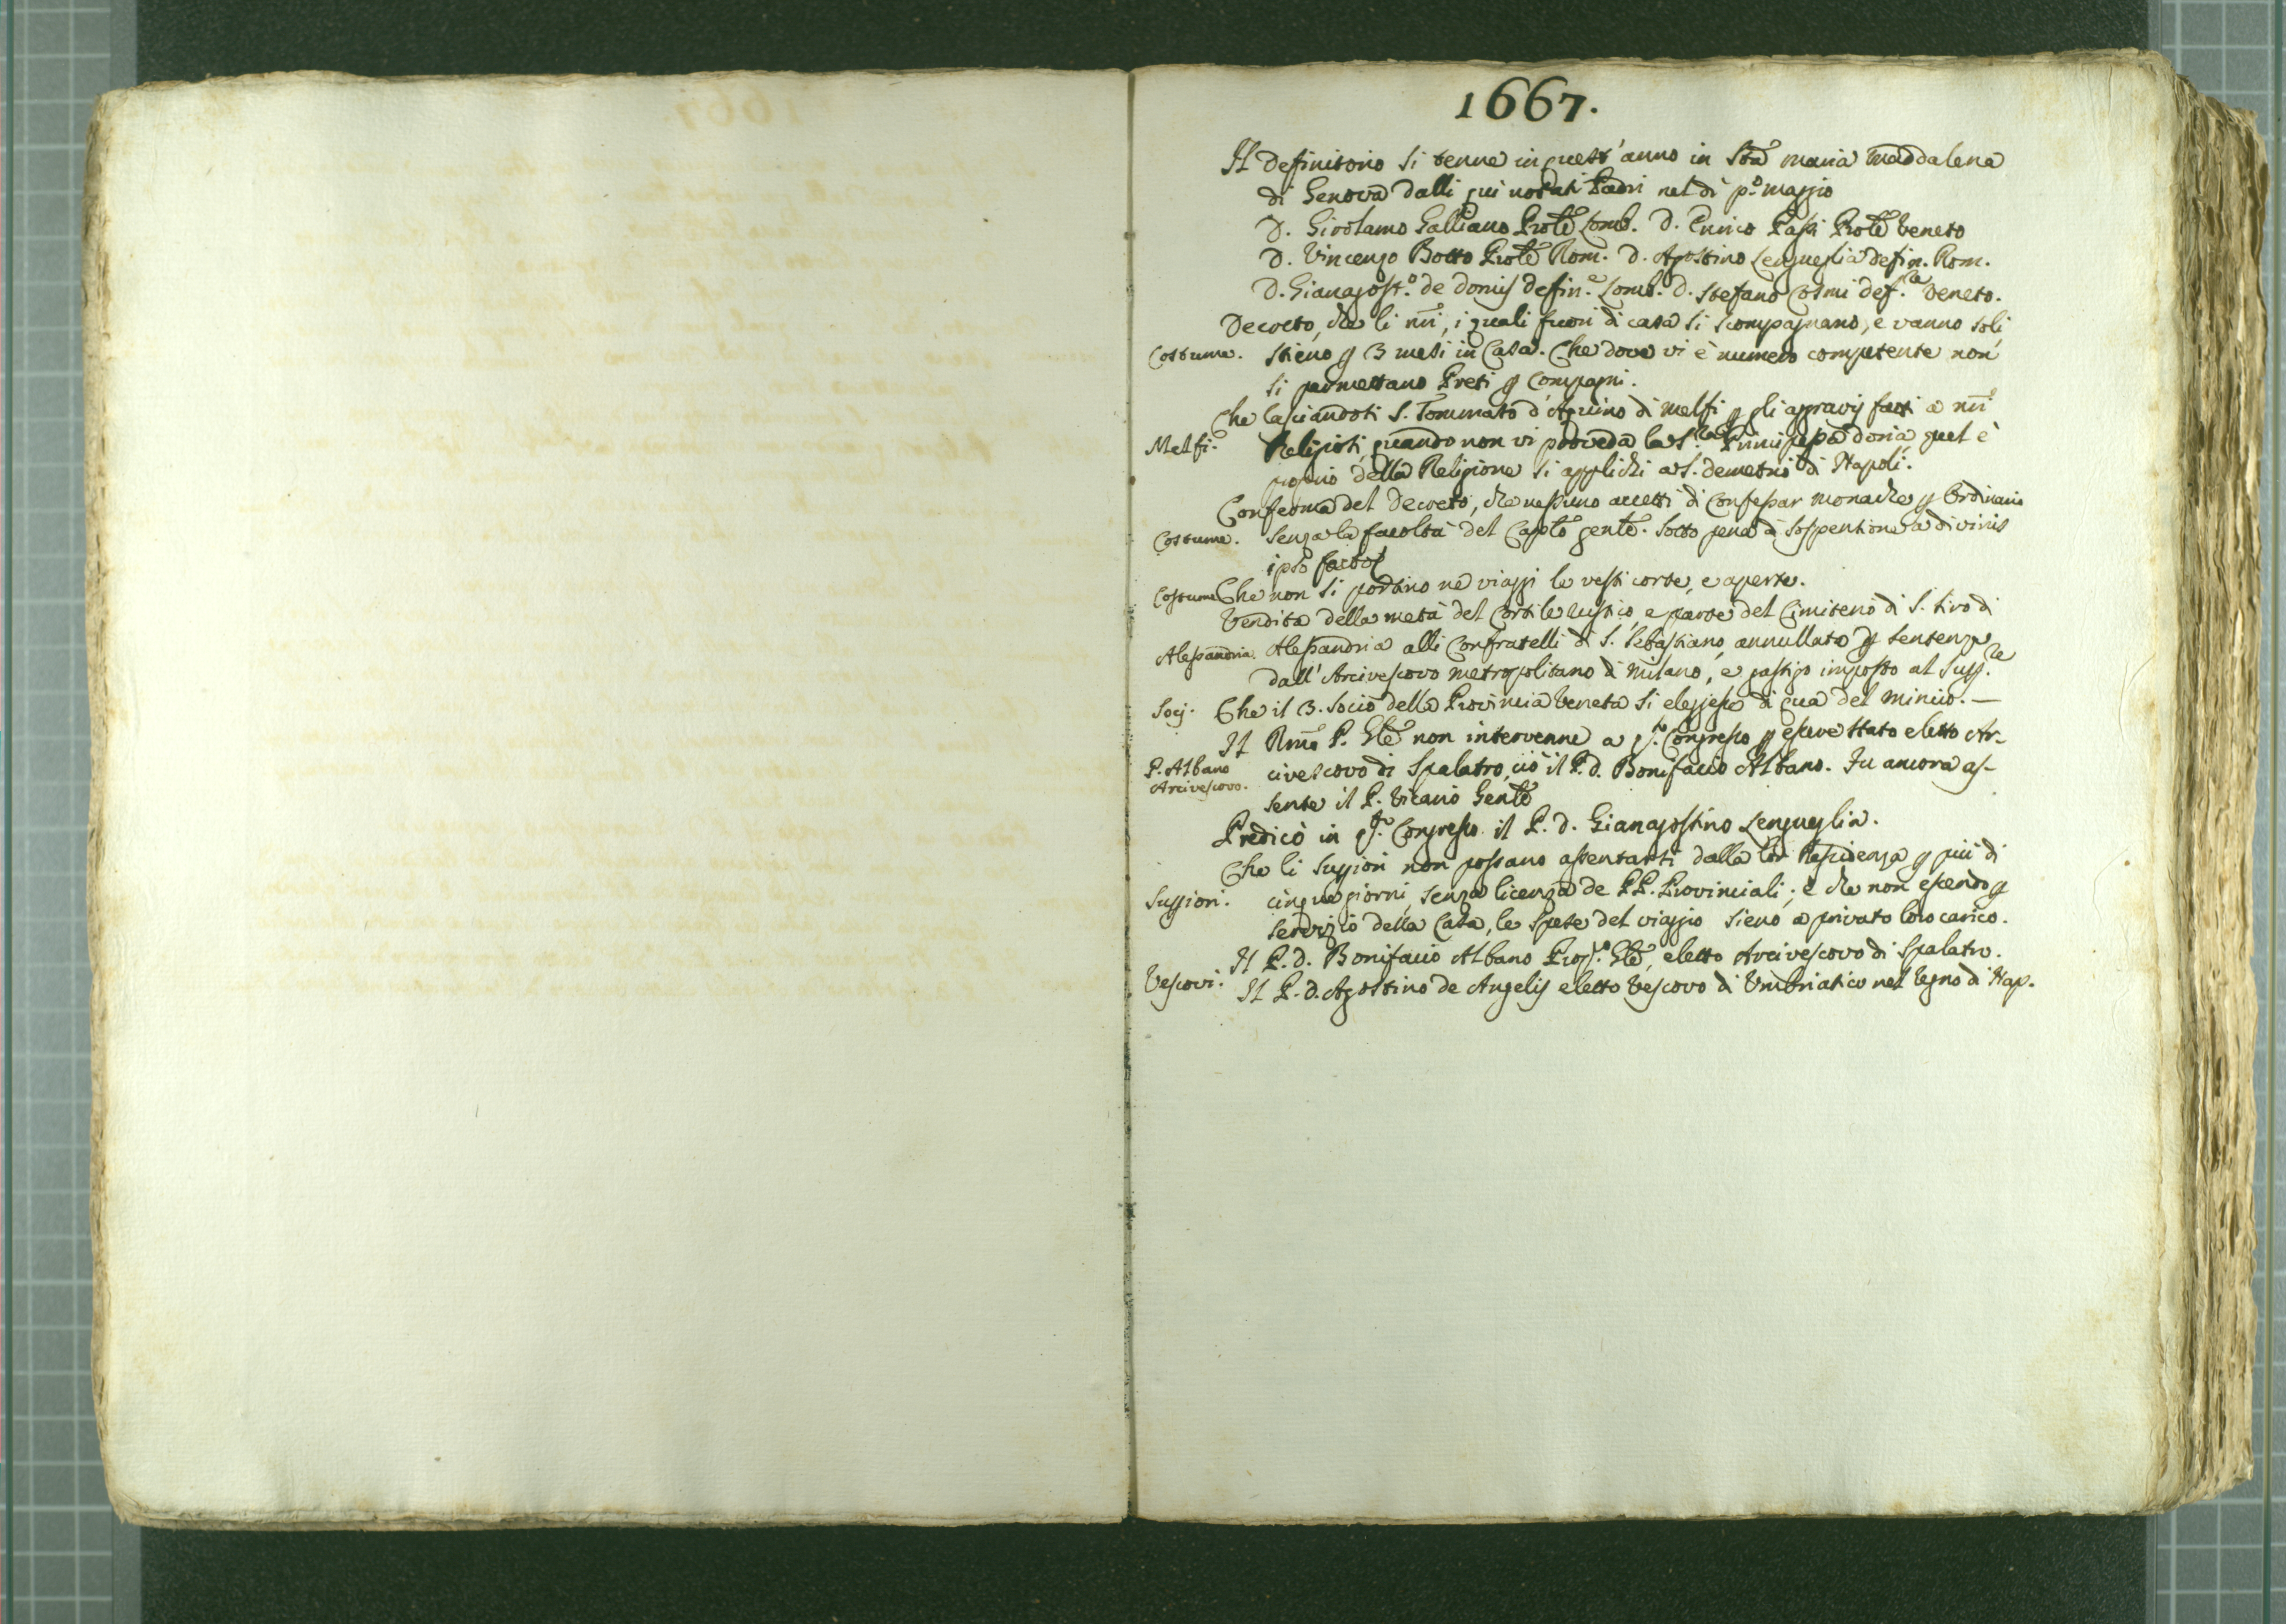 1667.
Il Definitorio si tenne in quest'anno in Sta Maria Maddalena
di Genova dalli qui notati Padri nel dì p.o maggio
D. Girolamo Galliano Prole Lomb. D. Enrico Passi Prole Veneto
D. Vincenzo Botto Prole Rom. D. Agostino Lengueglia defin. Rom.
D. Gianagost.o de Domis defin.e Lomb. D. Stefano Cosmi def.re Veneto.
Decreto, che li nri, i quali fuori di casa si scompagnano, e vanno soli,
Costume. stieno p 3 mesi in Casa. Che dove vi è numero competente non
si permettano Preti p Compagni.
Che lasciandosi S. Tommaso d'Aquino di Melfi p gli agravij fatti a nri
Melfi. Religiosi, quando non vi proveda la S.ra Principessa Doria, quel è
proprio della Religione si applichi a S. Demetrio di Napoli.
Conferma del Decreto, che nessuno accetti di Confessar Monache p Ordinario
Costume. senza la facoltà del Caplo genle. sotto pena di sospensione a divinis
ipso facto
Costume Che non si portino ne viaggi le vesti corte, e aperte.
Vendita della metà del Cortile rustico, e parte del Cimiterio di S. Siro di
Alessandria. Alessandria alli Confratelli di S. Sebastiano, annullata p sentenza
dall'Arcivescovo metropolitano di Milano, e gastigo imposto al Supp.re
Socj. Che il 3. Socio della Provincia Veneta si elegesse di qua del Mincio. —
Il Rmo P. Gle non intervenne a q.to Congresso p essere stato eletto Ar-
P. Albano Arcivescovo. civescovo di Spalatro, ciò il P. D. Bonifacio Albano. Fu ancora as-
sente il P. Vicario Genle
Predicò in q.to Congresso il P. D. Gianagostino Lengueglia.
Che li Suppiori non possano assentarsi dalla lor Residenza p più di
Suppiori. cinque giorni, senza licenza de PP. Provinciali; e che non essendo p
servizio della Casa, le spese del viaggio sieno a privato loro carico.
Il P. D. Bonifacio Albano Prop.o Gle, eletto Arcivescovo di Spalatro.
Vescovi. Il P. D. Agostino de Angelis eletto Vescovo di Umbriatico nel Regno di Nap.